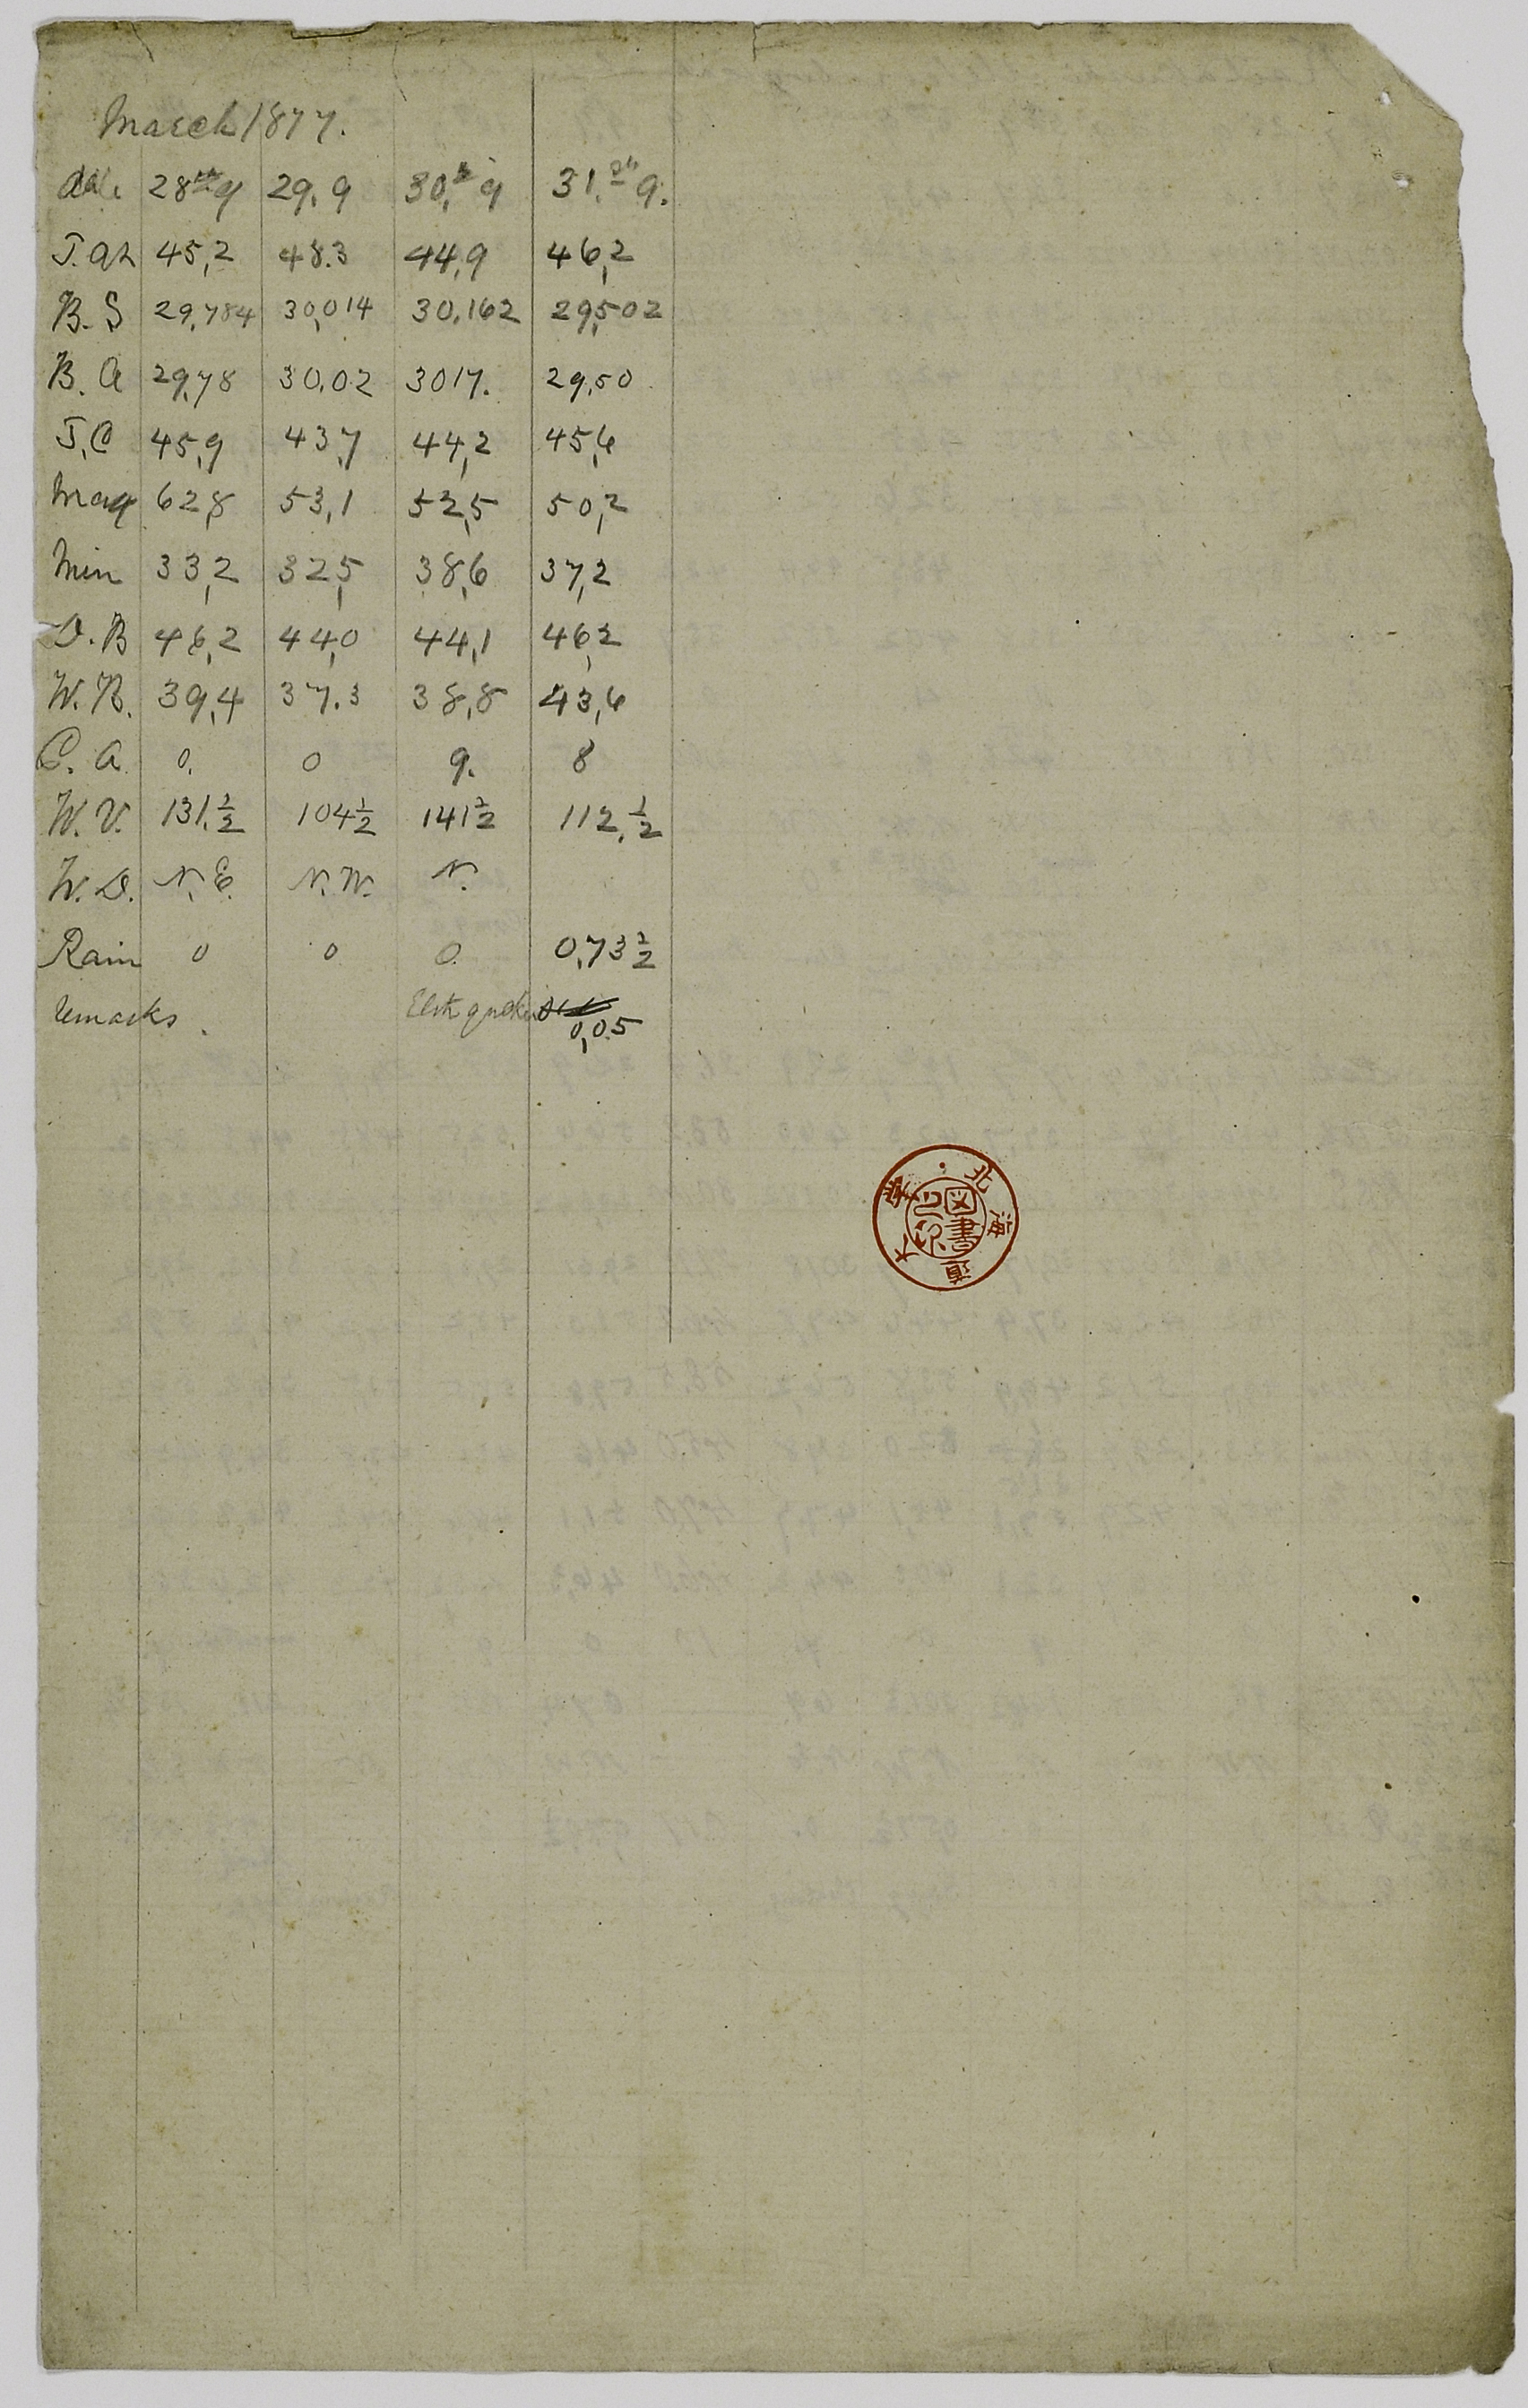 March 1877.
date 28th 9 29. 9 30.th 9 31.th 9.
T. at 45,2 48.3 44,9 46,2
B. S 29,784 30,014 30.162 29,502
B. A 29,78 30.02 3017. 29,50
T. C 45,9 43,7 44,2 45,6
Max 62,8 53,1 52,5 50,2
Min 33,2 32,5 38,6 37,2
D. B 46,2 44,0 44,1 46,2
W. B. 39,4 37.3 38,8 43,6
C. A. 0. 0 9. 8
W. V. 131.½ 104½ 141½ 112.½
W. D. N. E. N. W. N.
Rain 0 0 0. 0,73½
Remarks.
0,05
北海道大學
図書